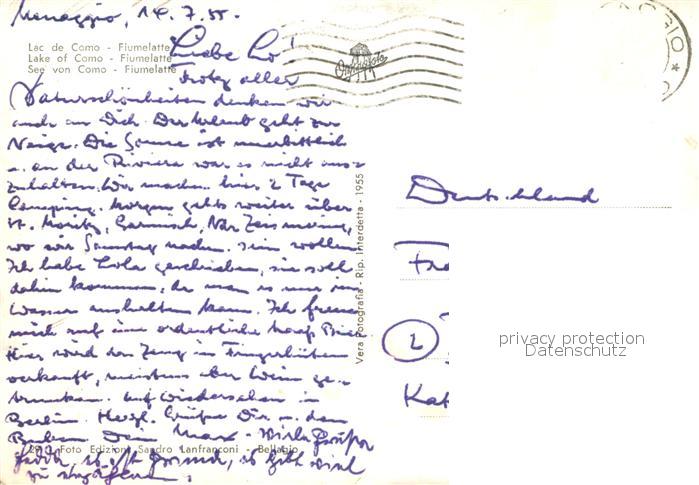 Menaggio, 14.7.55.
Lac de Como - Fiumelatte
Lake of Como - Fiumelatte
See von Como - Fiumelatte
Liebe Lo!
Trotz aller
Naturschönheiten denken wir
auch an Dich. Der Urlaub geht zur
Neige. Die Sonne ist unerbittlich
u. an der Riviera war es nicht aus-
zuhalten. Wir machen hier 2 Tage
Camping. Morgen gehts weiter über
St. Moritz, Garmisch,
wo wir Samstag sein wollen.
Ich habe Lola geschrieben, sie soll
dahin kommen, da man es nur im
Wasser aushalten kann. Ich freue
mich auf eine ordentliche
Hier wird der Zeug in Fingerhüten
verkauft, meistens aber Wein ge-
trunken. Auf Wiedersehen in
Berlin. Herzl. Grüße Dir u. dem
Dein Max - Viele Grüße
es gibt viel
zu erzählen.
2913 Foto Edizioni Sandro Lanfranconi - Bellagio
Vera Fotografia - Rip. Interdetta - 1955
Deutschland
Fra
2
Kat
privacy protection
Datenschutz